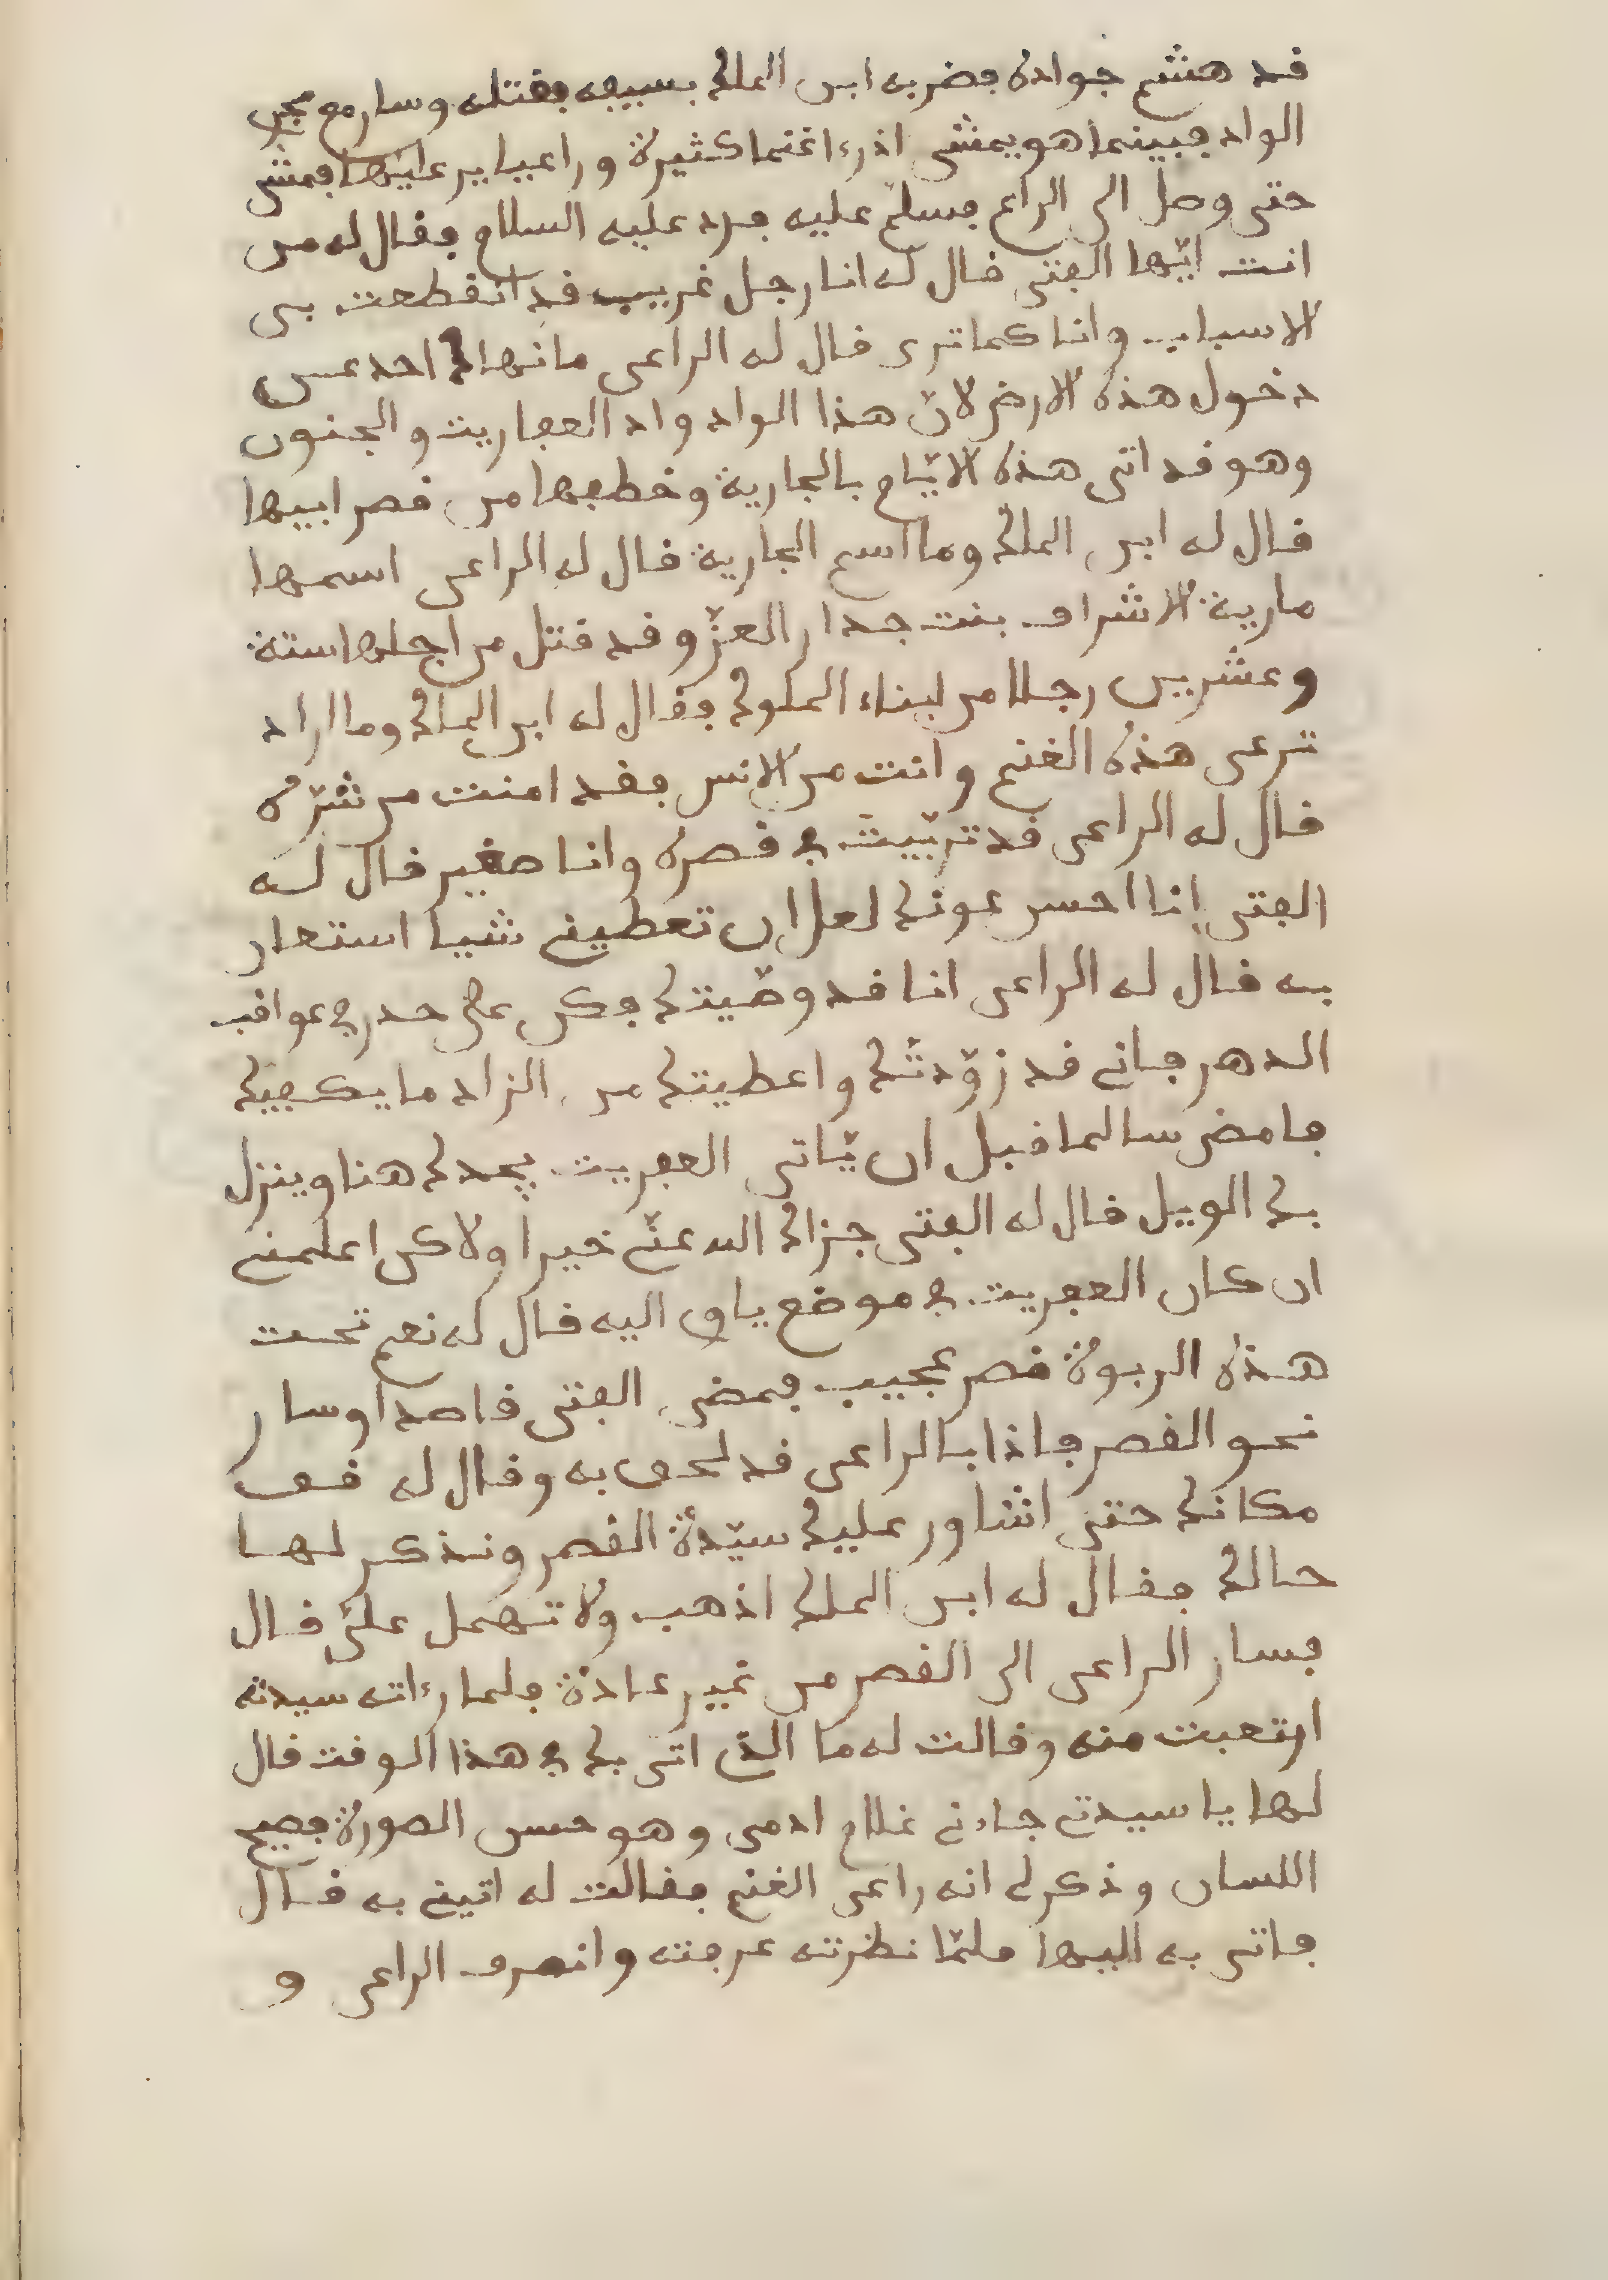 قد هشم جواده فضربه ابن الملك بسيفه فقتله وسار مع مجرى
الواد فبينما هو يمشى اذ رءا غنما كثيرة وراعيا يرعليها فمشى
حتى وصل الى الراعى فسلم عليه فرد عليه السلام فقال له من
انت ايّها الفتى قال له انا رجل غريب قد انقطعت بى
الاسباب وانا كما ترى قال له الراعى ما نهاك احد عن
دخول هذه الارض لانّ هذا الواد واد العفاريت والجنون
وهو قد اتى هذه الايّام بالجارية وخطفها من قصر ابيها
قال له ابن الملك وما اسم الجارية قال له الراعى اسمها
مارية الاشراف بنت جدار العزّ وقد قتل من اجلها ستة
وعشرين رجلا من ابناء الملوك فقال له ابن الملك وما اراد
ترعى هذه الغنم وانت من الانس فقد امنت من شرّه
قال له الراعى قد تربّيت فى قصره وانا صغير قال له
الفتى انا احسن عونك لعل ان تعطينى شيا استعار
به قال له الراعى انا قد وصّيتك فكن على حدر فى عواقب
الدهر فانى قد زوّدتك واعطيتك من الزاد ما يكفيك
فامض سالما قبل ان يّاتى العفريت يجدك هنا وينزل
بك الويل قال له الفتى جزاك الله عنّى خيرا ولاكن اعلمنى
ان كان العفريت فى موضع ياوى اليه قال له نعم تحت
هذه الربوة قصر عجيب فمضى الفتى قاصدا وسار
نحو القصر فاذا بالراعى قد لحق به وقال له قف
مكانك حتى اشاور عليك سيّدة القصر ونذكر لها
حالك فقال له ابن الملك اذهب ولا تهمل علىّ قال
فسار الراعى الى القصر من غير عادة فلما رءاته سيدته
ارتعبت منه وقالت له ما الذى اتى بك فى هذا الوقت قال
لها يا سيدتى جاءنى غلام ادمى وهو حسن الصورة فصيح
اللسان وذكر لى انه راعى الغنم فقالت له اتينى به قال
فاتى به اليها فلمّا نظرته عرفته وانصرف الراعى و